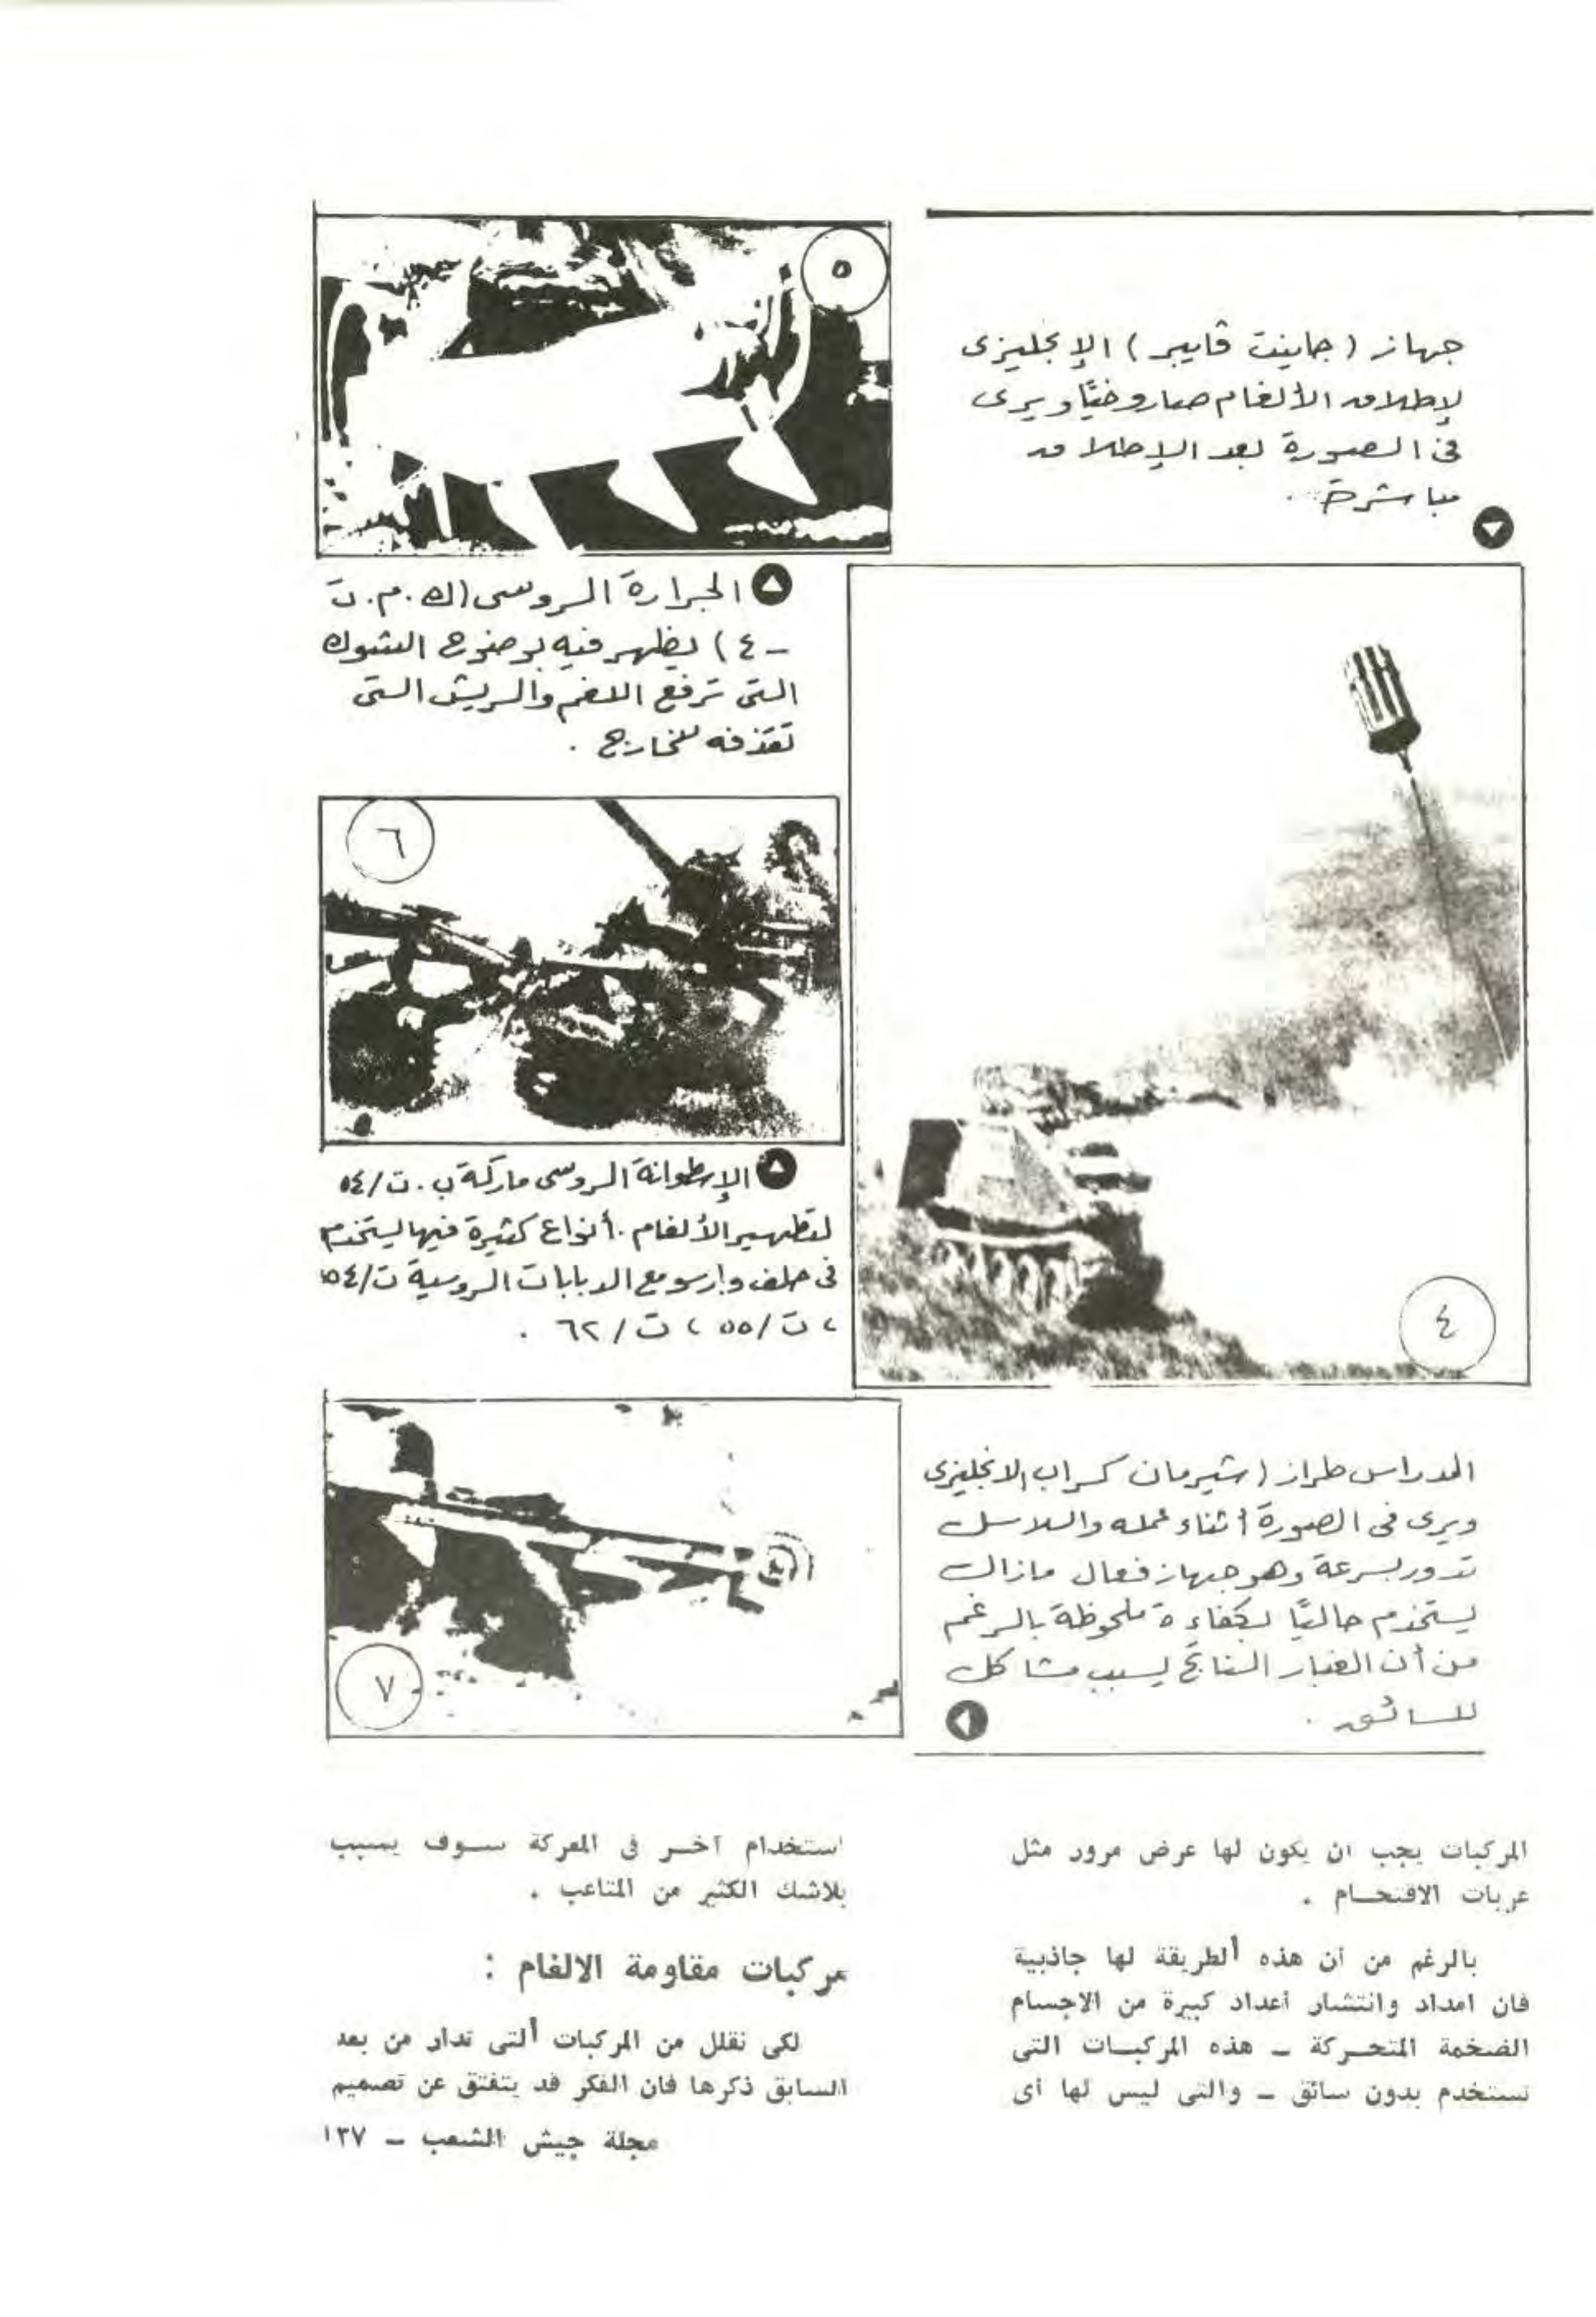 جهاز (جاينت ڤايبر) الإنجليزى
لإطلاق الألغام صاروخيًا ويرى
فى الصورة بعد الإطلاق
مباشرة .
٤
٥
الجرارة الروسى (ك . م . ت
– ٤) يظهر فيه بوضوح الشوك
التى ترفع اللغم والريش التى
تقذفه للخارج .
٦
الإسطوانة الروسى ماركة ب . ت/٥٤
لتطهير الألغام . أنواع كثيرة فيها يستخدم
فى حلف وارسو مع الدبابات الروسية ت/٥٤
، ت/٥٥ ، ت/٦٢ .
٧
المدراس طراز (شيرمان كراب) الإنجليزى
ويرى فى الصورة أثناء عمله والسلاسل
تدور بسرعة وهو جهاز فعال مازال
يستخدم حاليًا بكفاءة ملحوظة بالرغم
من أن الغبار الناتج يسبب مشاكل
للسائق .
المركبات يجب ان يكون لها عرض مرور مثل
عربات الاقتحـام .
بالرغم من أن هذه الطريقة لها جاذبية
فان امداد وانتشار أعداد كبيرة من الاجسام
الضخمة المتحـركة – هذه المركبـات التى
تستخدم بدون سائق – والتى ليس لها أى
استخدام آخـر فى المعركة سـوف يسبب
بلاشك الكثير من المتاعب .
مركبات مقاومة الالغام :
لكى نقلل من المركبات التى تدار من بعد
السابق ذكرها فان الفكر قد يتفتق عن تصميم
مجلة جيش الشعب – ١٣٧